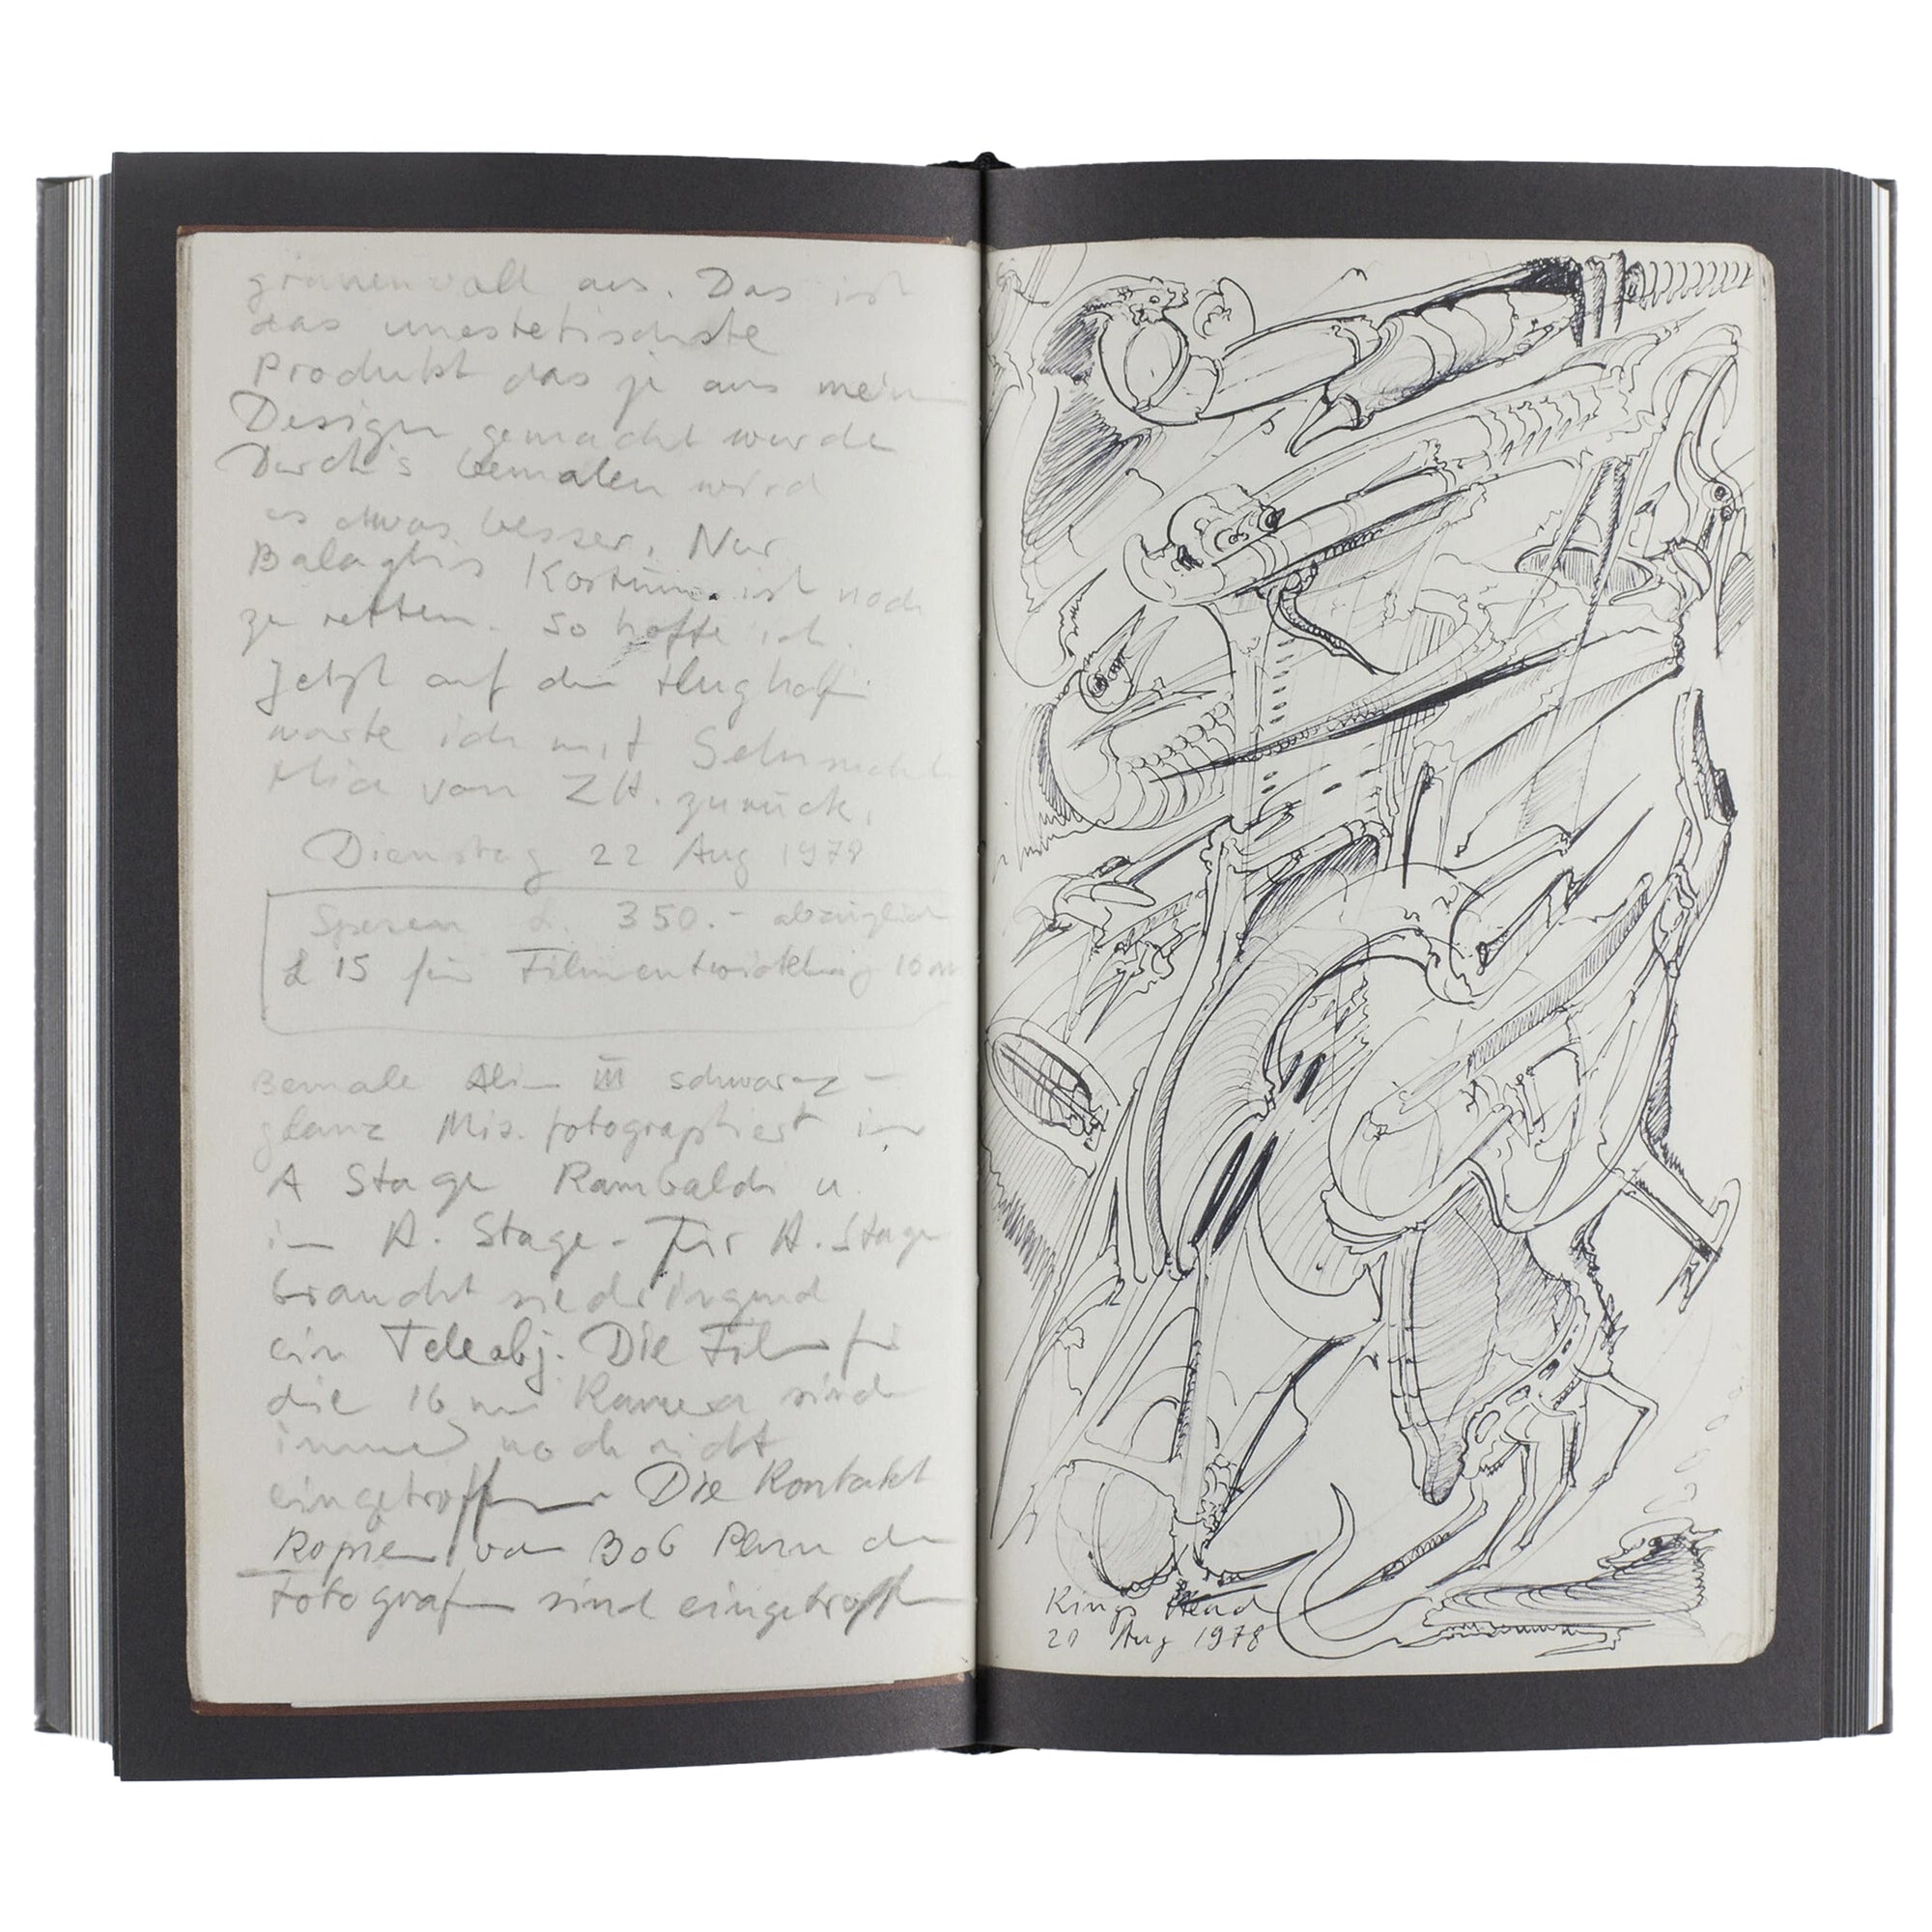 grauenvoll aus. Das ist
das unestetischste
Produkt das je aus mein
Design gemacht wurde
Durch's bemalen wird
es etwas besser, Nur
Kostüm ist noch
zu retten. So hoffe ich.
Jetzt auf dem Flughafen
warte ich mit Sehnsucht
Mia von ZH. zurück.
Dienstag 22 Aug 1978
Spesen £. 350.- abzüglich
£ 15 für Filmentwicklung 16m
Bemale Alien III schwarz -
glanz Mia. fotographiert im
A Stage Rambaldi u.
in A. Stage - Für A. Stage
braucht sie dringend
ein Teleobj. Die Film für
die 16 mm Kamera sind
immer noch nicht
eingetroffen Die Kontakt
Kopien von Bob Penn dem
Fotografen sind eingetroffen
Kings Head
20 Aug 1978